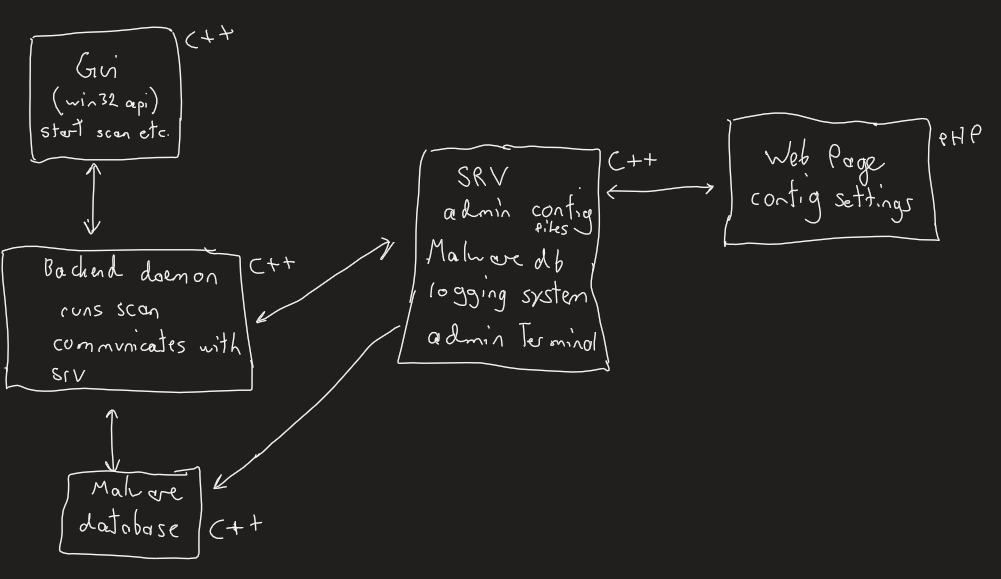 Gui
(win32 api)
start scan etc.
C++
Backend daemon
runs scan
communicates with
srv
C++
Malware
database
C++
SRV
admin config
files
Malware db
logging system
admin Terminal
C++
Web Page
config settings
PHP